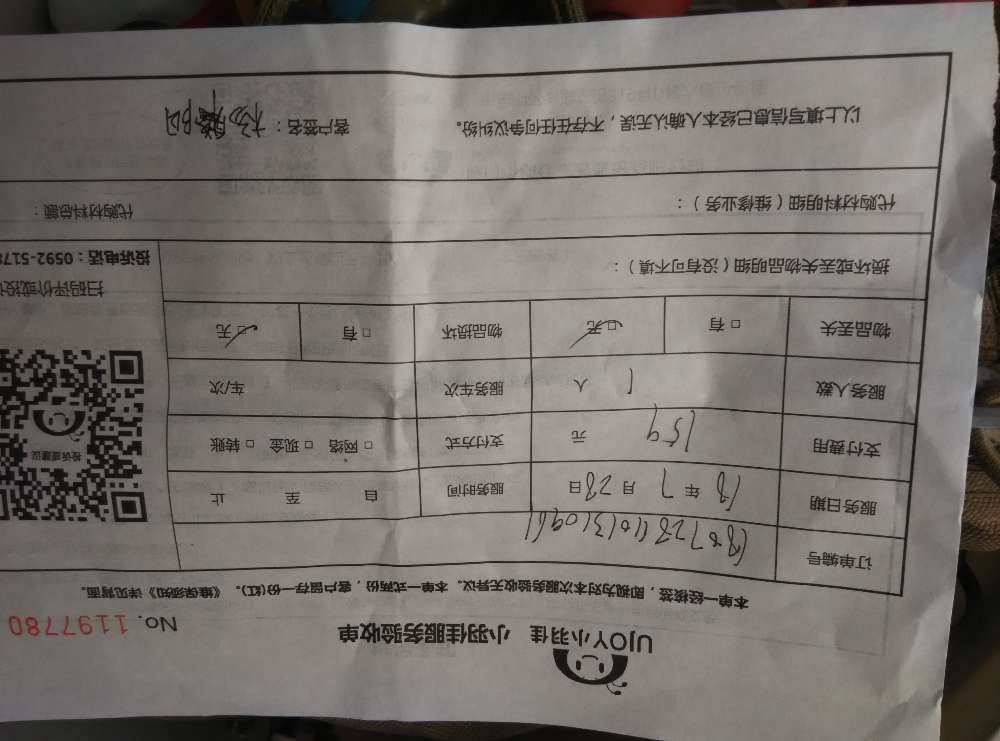 UJOY小羽佳 小羽佳服务验收单
No. 1197780
本单一经核签，即视为对本次服务验收无异议。本单一式两份，客户留存一份(红)。《维保须知》详见背面。
订单编号
服务日期 18 年 7 月 28 日 服务时间 自 至 止
支付费用 159 元 支付方式 □ 网络 □ 现金 □ 转账
服务人数 1 人 服务车次 车/次
物品丢失 □ 有 □ 无 物品损坏 □ 有 □ 无
投诉或建议
扫码评价或投
投诉电话：0592-517
损坏或丢失物品明细（没有可不填）：
代购材料明细（维修业务）： 代购材料总额：
以上填写信息已经本人确认无误，不存在任何争议纠纷。 客户签名：